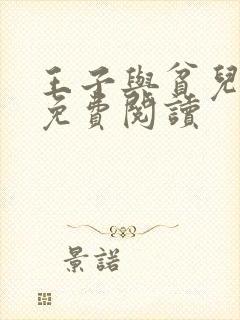 王子與貧兒
免費閱讀
景諾